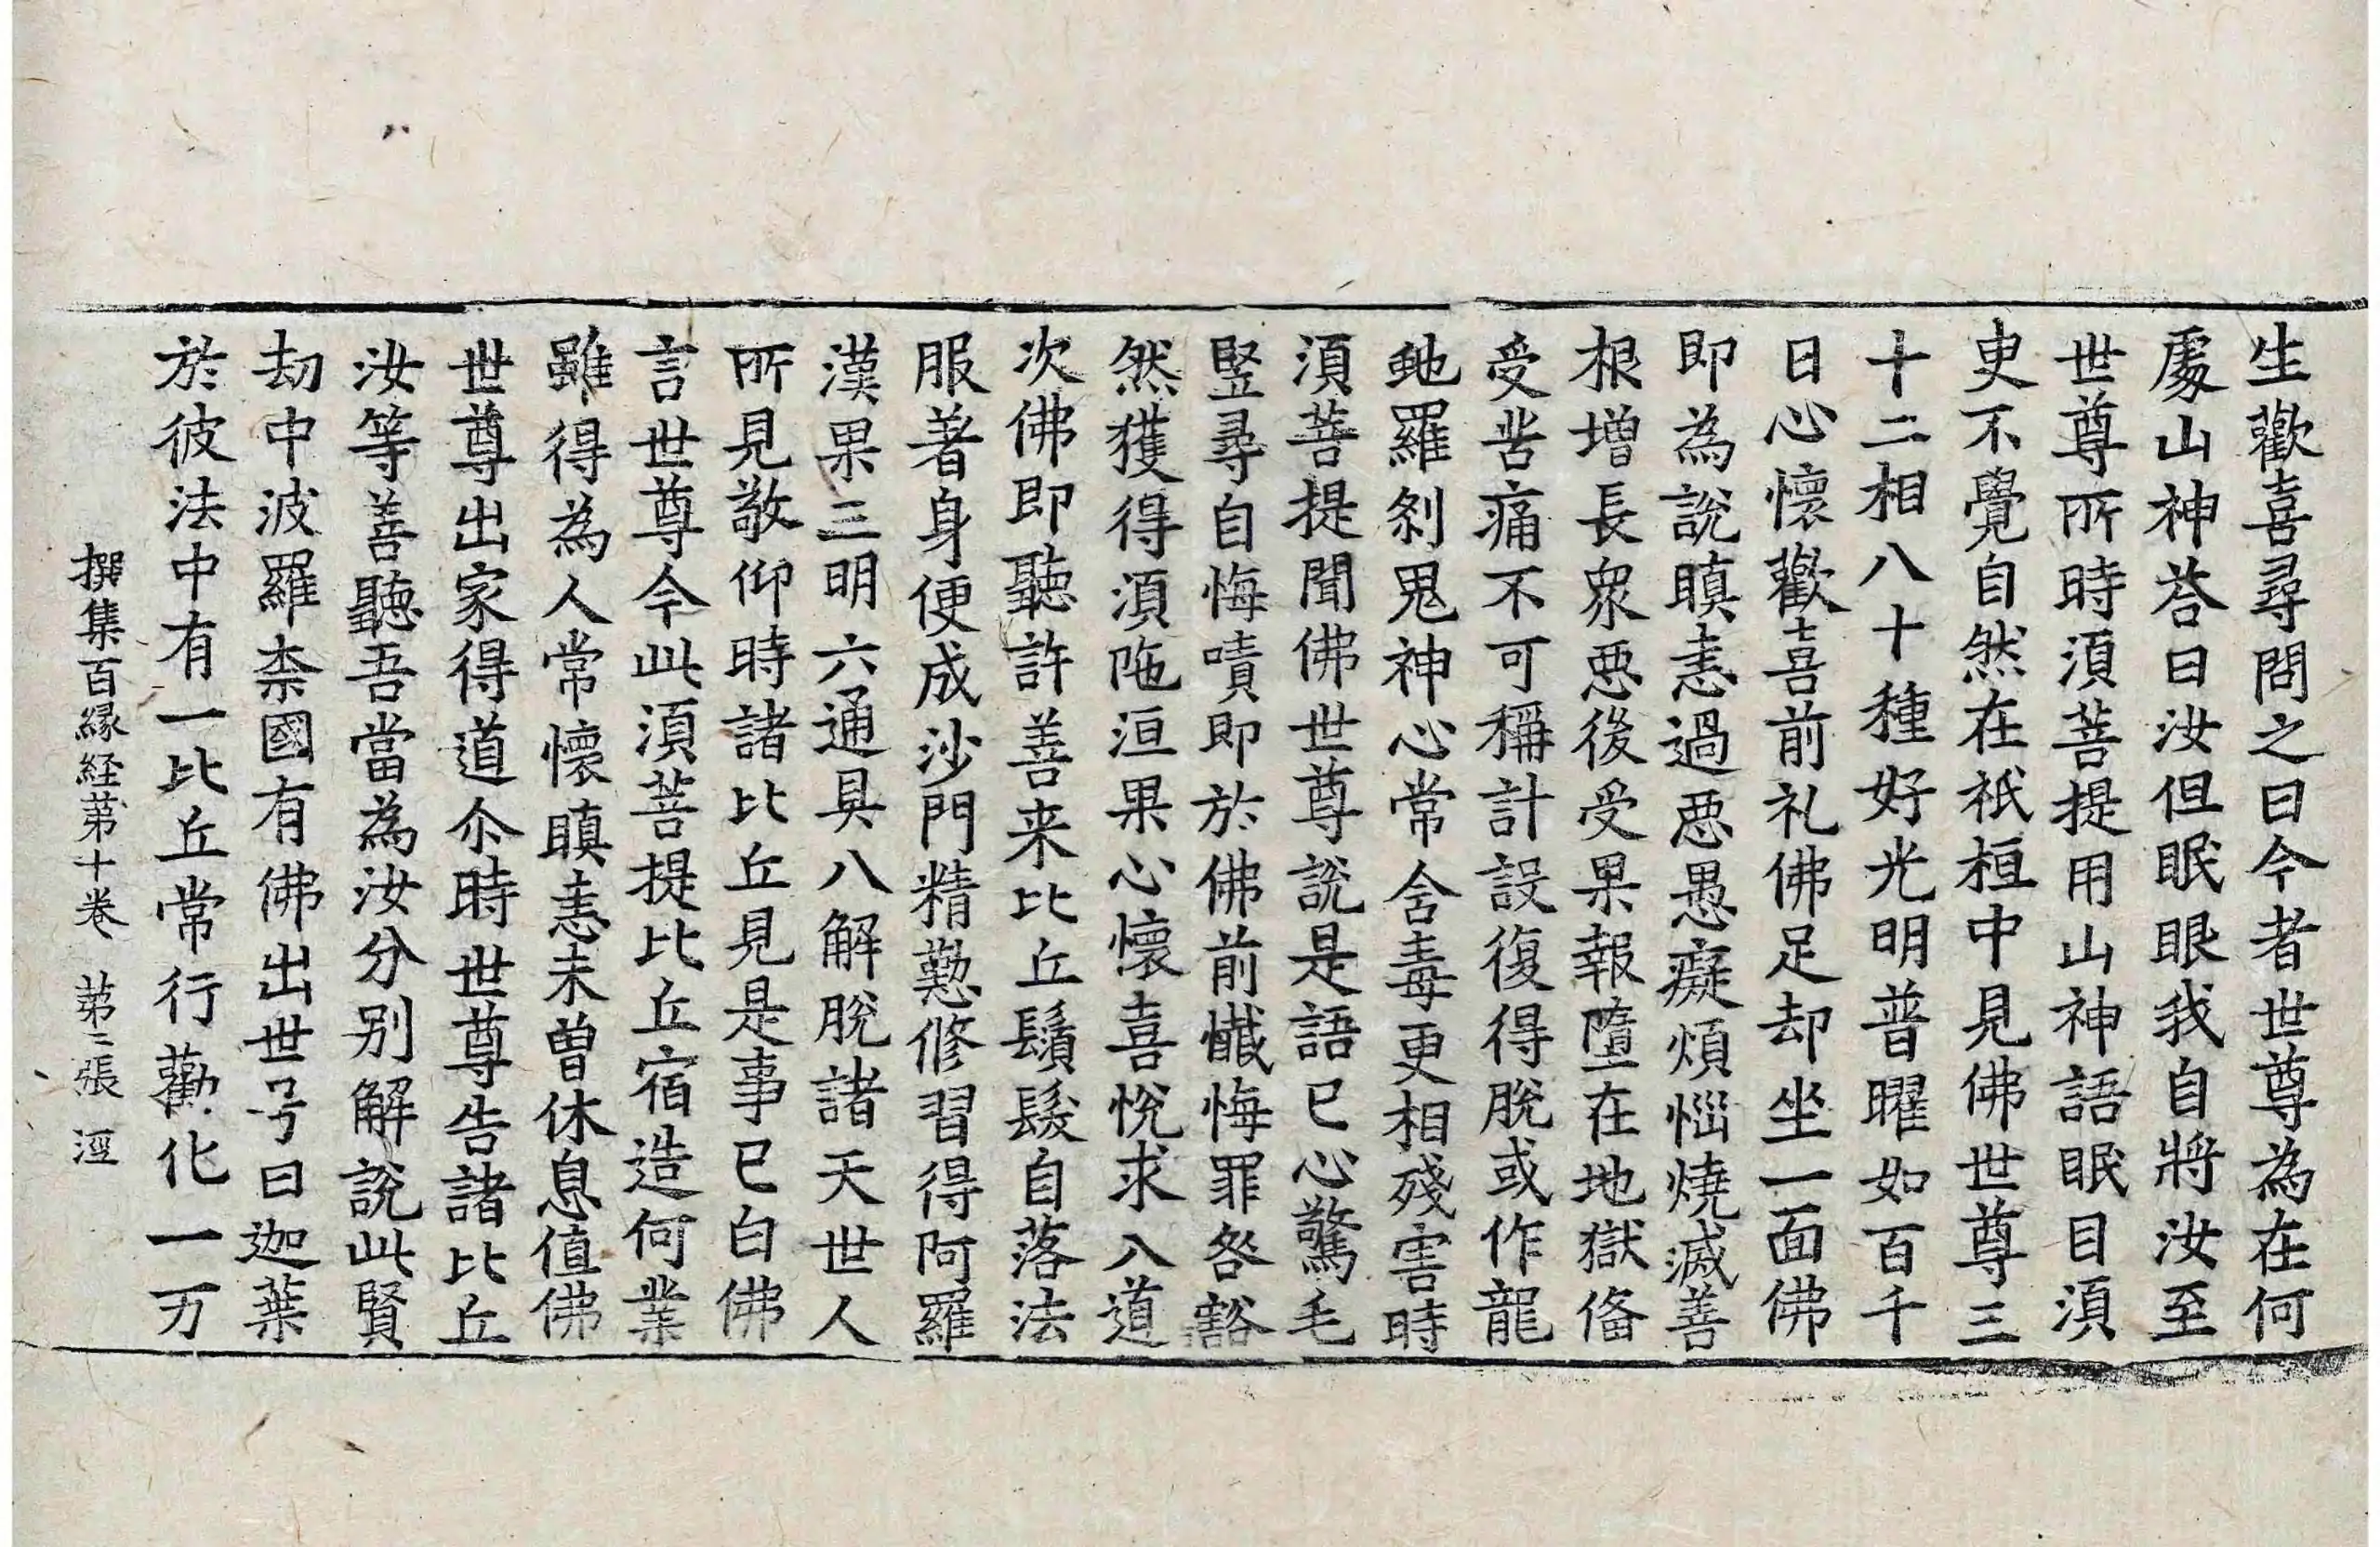 生歡喜尋問之曰今者世尊為在何
處山神荅曰汝但眠眼我自將汝至
世尊所時湏菩提用山神語眠目湏
㬰不覺自然在祇桓中見佛世尊三
十二相八十種好光明普曜如百千
日心懷歡喜前礼佛足却坐一面佛
即為說瞋恚過惡愚癡煩惱燒滅善
根增長衆惡後受果報墮在地獄俻
受苦痛不可稱計設復得脫或作龍
虵羅剎鬼神心常含毒更相殘害時
湏菩提聞佛世尊說是語已心驚毛
竪尋自悔嘖即於佛前懺悔罪咎豁
然獲得湏陁洹果心懷喜悅求入道
次佛即聽許善来比丘鬚髮自落法
服著身便成沙門精懃修習得阿羅
漢果三明六通具八解脫諸天世人
所見敬仰時諸比丘見是事已白佛
言世尊今此湏菩提比丘宿造何業
雖得為人常懷瞋恚未曾休息值佛
世尊出家得道尒時世尊告諸比丘
汝等善聽吾當為汝分別解說此賢
劫中波羅㮈國有佛出世号曰迦葉
於彼法中有一比丘常行勸化一万
撰集百縁経苐十卷 苐三張 㳷